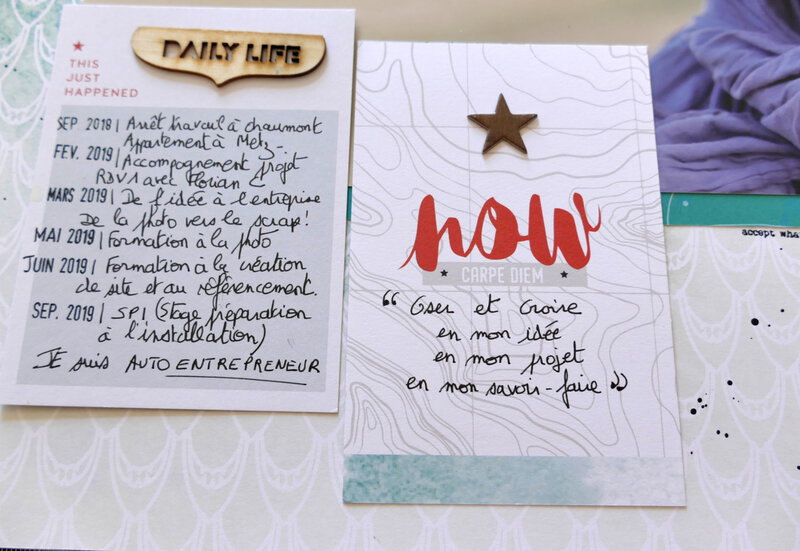 DAILY LIFE
THIS
JUST
HAPPENED
SEP 2018 | Arrêt travail à chaumont
Appartement à Metz -
FEV. 2019 | Accompagnement projet
RDV 1 avec Florian C
MARS 2019 | De l'idée à l'entreprise
De la photo vers le scrap!
MAI 2019 | Formation à la photo
JUIN 2019 | Formation à la création
de site et au référencement.
SEP. 2019 | SPI (Stage préparation
à l'installation)
JE suis AUTO ENTREPRENEUR
now
CARPE DIEM
“ Oser et Croire
en mon idée
en mon projet
en mon savoir-faire ”
accept wha